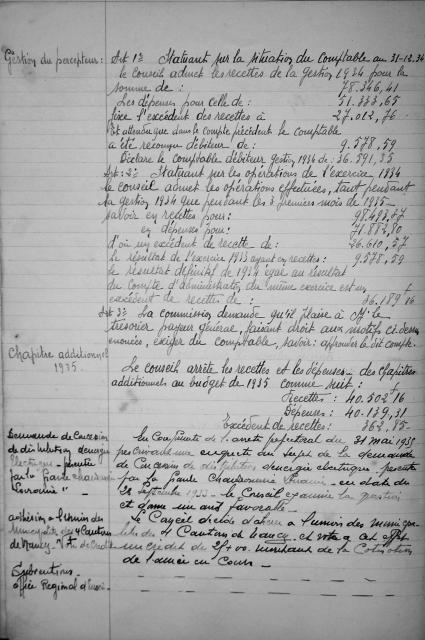 Gestion du percepteur:
Art 1er Statuant sur la situation du Comptable au 31-12-34
le conseil admet les recettes de la gestion 1934 pour la
somme de : 78.346,41
Les dépenses pour celle de : 51.333,65
fixe l'excédent des recettes à 27.012,76
Et attendu que dans le compte précédent le comptable
a été reconnu débiteur de : 9.578,59
Déclare le comptable débiteur gestion 1934 de : 36.591,35
Art : 2e Statuant sur les opérations de l'exercice 1934
le conseil admet les opérations effectuées, tant pendant
la gestion 1934 que pendant les 3 premiers mois de 1935
savoir en recettes pour :
en dépenses pour :
d'où un excédent de recette de : 26.610,57
le résultat de l'exercice 1933 ayant en recettes : 9.578,59
le résultat définitif de 1934 égal au résultat
du Compte d'administration du même exercice est un
excédent de recettes de : 36.189,16
Art 3e La commission demande qu'il plaise à Mr le
trésorier payeur général, faisant droit aux motifs ci-dessus
énoncés, exiger du comptable, savoir : approuver le dit compte.
Chapitre additionnel
1935.
Le conseil arrête les recettes et les dépenses des chapitres
additionnels au budget de 1935 comme suit :
Recettes : 40.502,16
Dépenses : 40.139,31
Excédent de recettes : 362,85
Demande de Concession
de distribution d'énergie
électrique présentée
par la
Lorraine"
En Conformité de l'arrêté préfectoral du 31 mai 1935
prescrivant une enquête au sujet de la demande
de Concession de distribution d'énergie électrique présentée
par la en date du
28 Septembre 1933 le Conseil examine la question
et donne un avis favorable.
adhésion à l'Union des
Municipalités des 4 Cantons
de Nancy
le Conseil décide d'adhérer à l'union des municipa-
lités des 4 Cantons de Nancy et vote à cet effet
un crédit de montant de la Cotisation
de l'année en Cours
Subventions
office Régional